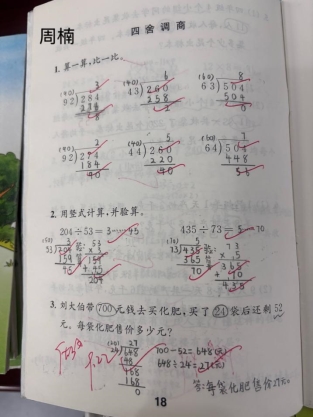 周楠
四舍调商
1. 算一算,比一比。
(90) 3 (40) 6 (60) 8
92)284 43)260 63)504
276 258 504
8 2 0
(90) 2 (40) 5 (60) 7
92)274 44)260 64)504
184 220 448
90 40 56
2. 用竖式计算,并验算。
204÷53=3……45 435÷73=5……70
3. 刘大伯带700元钱去买化肥,买了24袋后还剩52
元。每袋化肥售价多少元?
27
24)648
48
168
168
0
700-52=648(元)
648÷24=27(元)
答:每袋化肥售价27元。
18